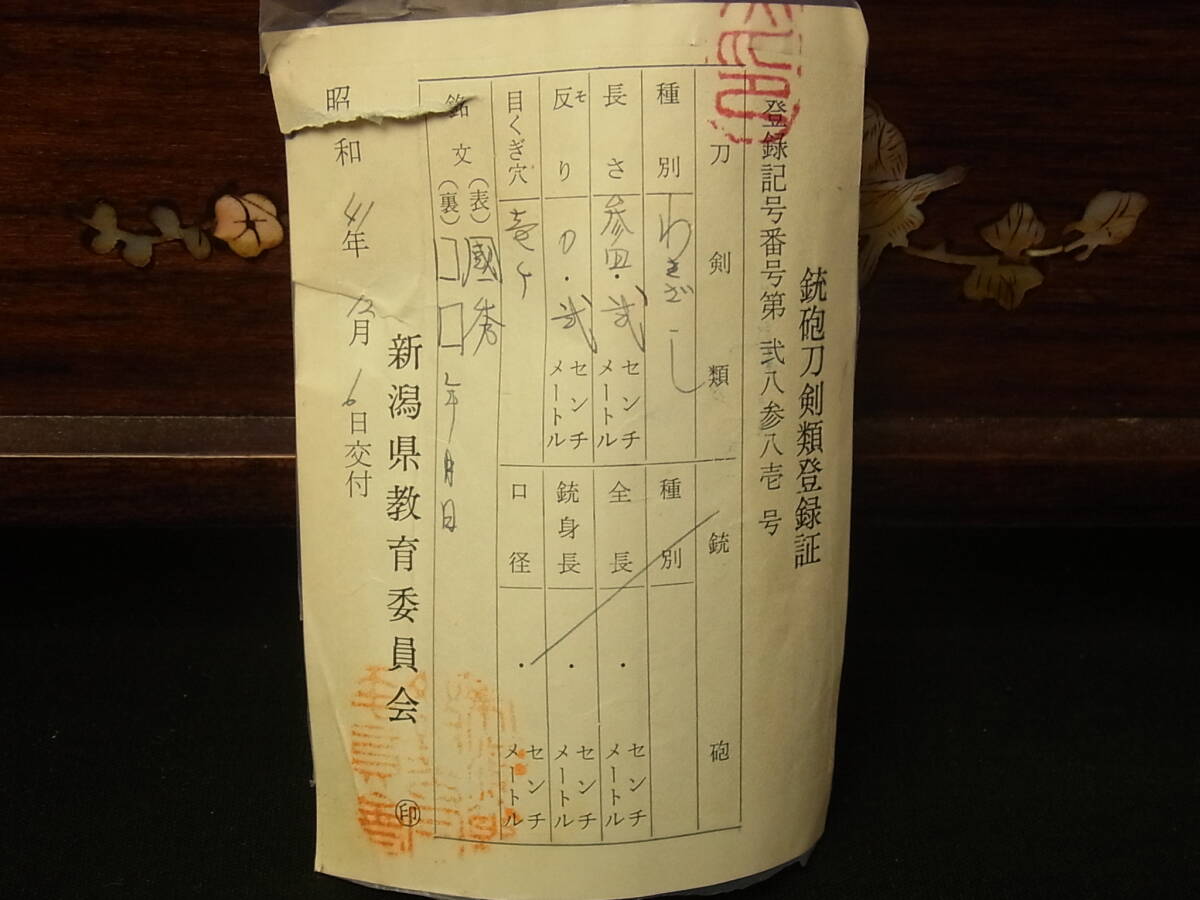 銃砲刀剣類登録証
登録記号番号第 弐八参八壱 号
刀剣類
種別 わきざし
長さ 参四・弐 センチメートル
反り ソ 〇・弐 センチメートル
目くぎ穴 壱ケ
銘文 (表) 國秀
(裏) 囗囗年月日
銃砲
種別
全長 ・ センチメートル
銃身長 ・ センチメートル
口径 ・ センチメートル
新潟県教育委員会 印
昭和41年12月6日交付